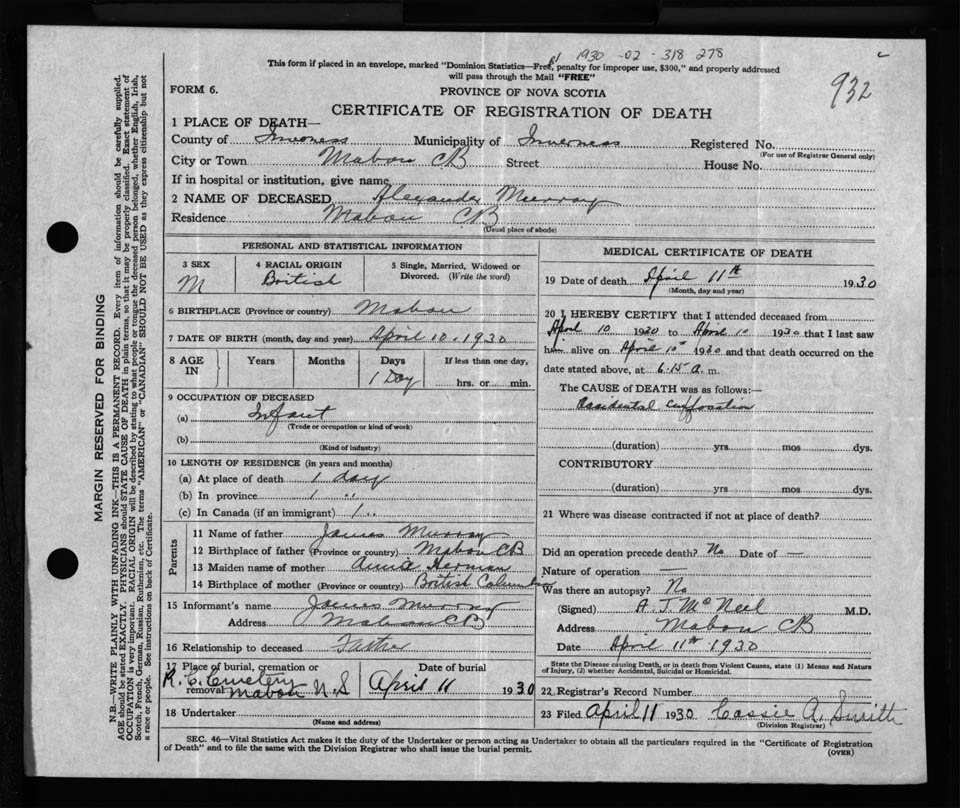 1930 -02 - 318 278
932
This form if placed in an envelope, marked "Dominion Statistics—Free, penalty for improper use, $300," and properly addressed
will pass through the Mail "FREE"
FORM 6.
PROVINCE OF NOVA SCOTIA
CERTIFICATE OF REGISTRATION OF DEATH
1 PLACE OF DEATH—
County of Inverness Municipality of Inverness Registered No.
(For use of Registrar General only)
City or Town Mabou CB Street House No.
If in hospital or institution, give name
2 NAME OF DECEASED Alexander Murray
Residence Mabou CB
(Usual place of abode)
PERSONAL AND STATISTICAL INFORMATION
3 SEX M
4 RACIAL ORIGIN British
5 Single, Married, Widowed or Divorced. (Write the word)
6 BIRTHPLACE (Province or country) Mabou
7 DATE OF BIRTH (month, day and year) April 10. 1930
8 AGE IN Years Months Days If less than one day,
1 Day hrs. or min.
9 OCCUPATION OF DECEASED
(a) Infant
(Trade or occupation or kind of work)
(b)
(Kind of industry)
10 LENGTH OF RESIDENCE (in years and months)
(a) At place of death 1 day
(b) In province 1 "
(c) In Canada (if an immigrant) 1 "
Parents
11 Name of father James Murray
12 Birthplace of father (Province or country) Mabou CB
13 Maiden name of mother Anna Herman
14 Birthplace of mother (Province or country) British Columbia
15 Informant's name James Murray
Address Mabou CB
16 Relationship to deceased Father
17 Place of burial, cremation or removal R. C. Cemetery Mabou N.S
Date of burial April 11 1930
18 Undertaker
(Name and address)
MEDICAL CERTIFICATE OF DEATH
19 Date of death April 11th 1930
(Month, day and year)
20 I HEREBY CERTIFY that I attended deceased from
April 10 1930 to April 10 1930 that I last saw
him alive on April 10th 1930 and that death occurred on the
date stated above, at 6.15 a. m.
The CAUSE OF DEATH was as follows:—
Accidental suffocation
(duration) yrs mos dys.
CONTRIBUTORY
(duration) yrs mos dys.
21 Where was disease contracted if not at place of death?
Did an operation precede death? No Date of —
Nature of operation —
Was there an autopsy? No
(Signed) A. J. McNeil M.D.
Address Mabou CB
Date April 11th 1930
State the Disease causing Death, or in death from Violent Causes, state (1) Means and Nature
of Injury, (2) whether Accidental, Suicidal or Homicidal.
22 Registrar's Record Number
23 Filed April 11 1930 Cassie A. Smith
(Division Registrar)
SEC. 46—Vital Statistics Act makes it the duty of the Undertaker or person acting as Undertaker to obtain all the particulars required in the "Certificate of Registration
of Death" and to file the same with the Division Registrar who shall issue the burial permit.
(OVER)
MARGIN RESERVED FOR BINDING
N.B.—WRITE PLAINLY WITH UNFADING INK—THIS IS A PERMANENT RECORD. Every item of information should be carefully supplied.
AGE should be stated EXACTLY. PHYSICIANS should STATE CAUSE OF DEATH in plain terms, so that it may be properly classified. Exact statement of
OCCUPATION is very important. RACIAL ORIGIN will be described by stating to what people or tongue the deceased person belonged, whether English, Irish,
Scotch, French, German, Russian, Ruthenian, etc. The terms "AMERICAN" or "CANADIAN" SHOULD NOT BE USED as they express citizenship but not
a race or people. See instructions on back of Certificate.